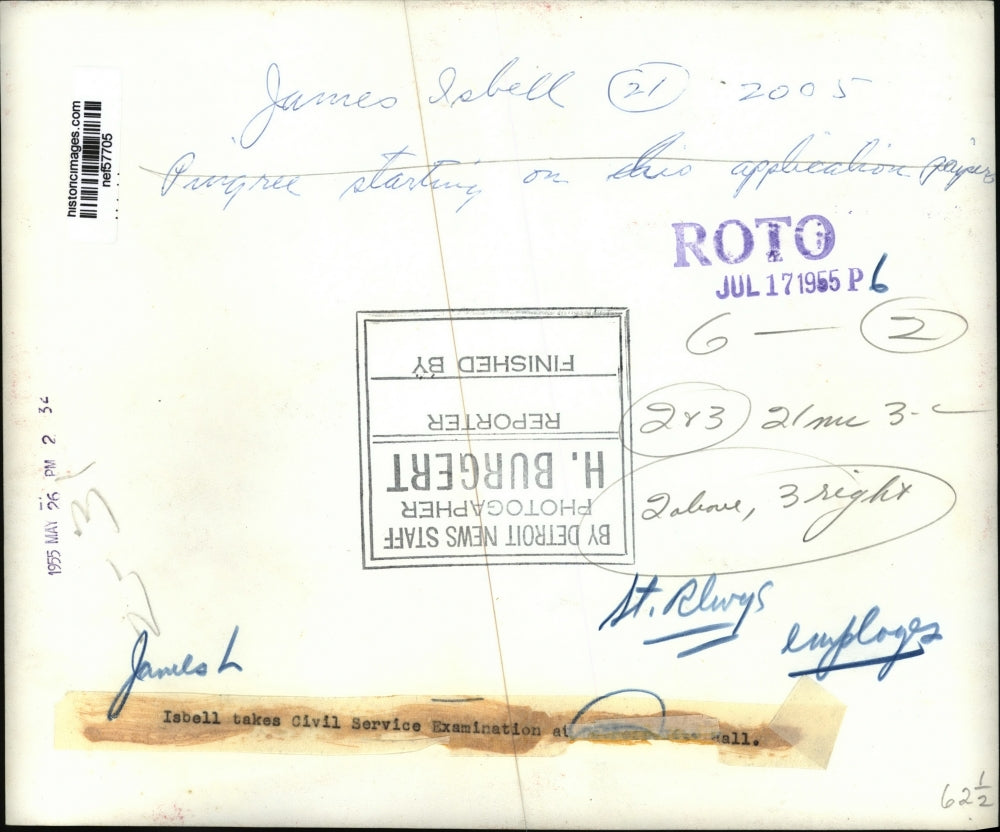 James Isbell 21 2005
Pingree starting on this application papers
historicimages.com
nef57705
ROTO
JUL 17 1955 P 6
6 — 2
2 & 3 21
2 above, 3 right
FINISHED BY
REPORTER
H. BURGERT
PHOTOGAPHER
BY DETROIT NEWS STAFF
1955 MAY 26 PM 2 34
St. Rlwys
employes
James L
Isbell takes Civil Service Examination at all.
62 1/2